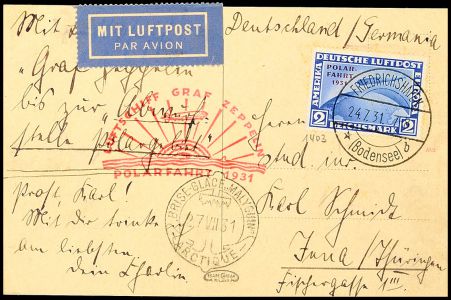 Mit
Deutschland / Germania
MIT LUFTPOST
PAR AVION
"Graf Zeppelin
bis zur "Abwurf
stelle Polargebiet"
Prost, Karl!
Mit dir trinke
am liebsten,
dein
LUFTSCHIFF GRAF ZEPPELIN
POLARFAHRT 1931
BRISE-GLACE MALYGUIN
27 VII 31
ARCTIQUE
DEUTSCHE LUFTPOST
EUROPA
AMERIKA
POLAR-
FAHRT
1931
2 REICHSMARK 2
FRIEDRICHSHAFEN
24.7.31
(Bodensee)
1403
Herrn
stud. iur.
Karl Schmidt
Jena / Thüringen
Fischergasse 1 III